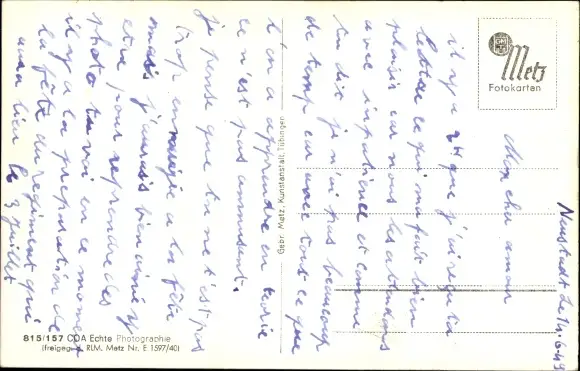 Neustadt le 14.6.49
Mon cher amour
il y a 24h que j'ai reçu ta
lettre ce qui ma fait bien
plaisir car nous les attendons
avec impatience et comme
tu dit je n'ai pas beaucoup
de temp car avec tout ce que
l'on a apprendre en teorie
ce n'est pas amusant.
je pense que tu ne t'est pas
trop ennuiyée a la fête
mais j'aurais bien aimé y
etre pour reprendre des
photo tu voi en ce moment
il y a la preparation de
la fête du regiment qui
aura lieu le 3 juillet
Metz
Fotokarten
Gebr. Metz, Kunstanstalt, Tübingen
815/157 COA Echte Photographie
(freigeg. RLM. Metz Nr. E 1597/40)